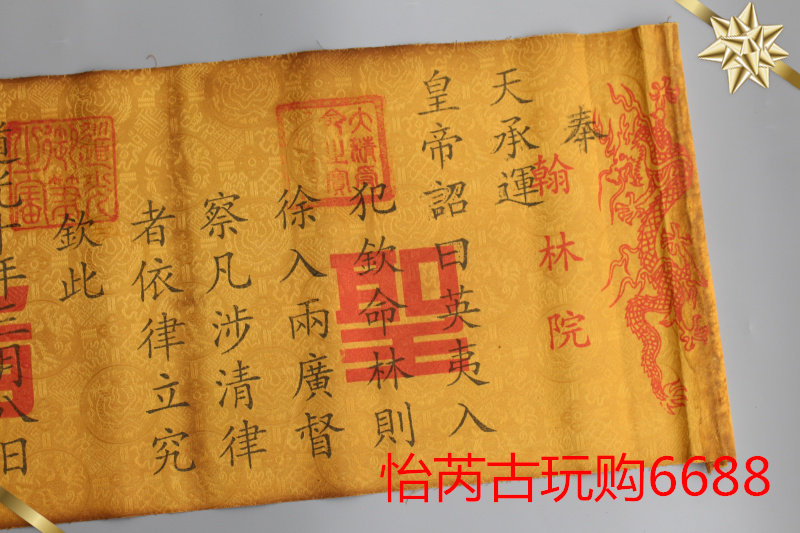 奉
翰林院
天承運
皇帝詔曰英夷入
聖
犯欽命林則
徐入兩廣督
察凡涉清律
者依律立究
欽此
光十年月八
怡芮古玩购6688